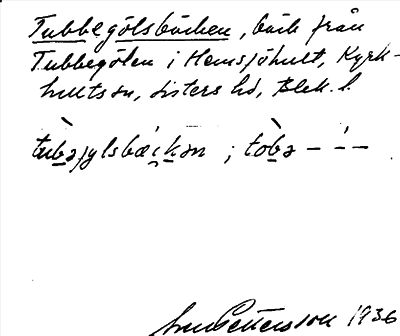 Tubbegölsbäcken, bäck från
Tubbegölen i Hemsjöhult, Kyrk-
hults sn, Listers hd, Blek. l.
tùbəjylsbæ̀ckən ; tòbə – ´ –
Pettersson 1936